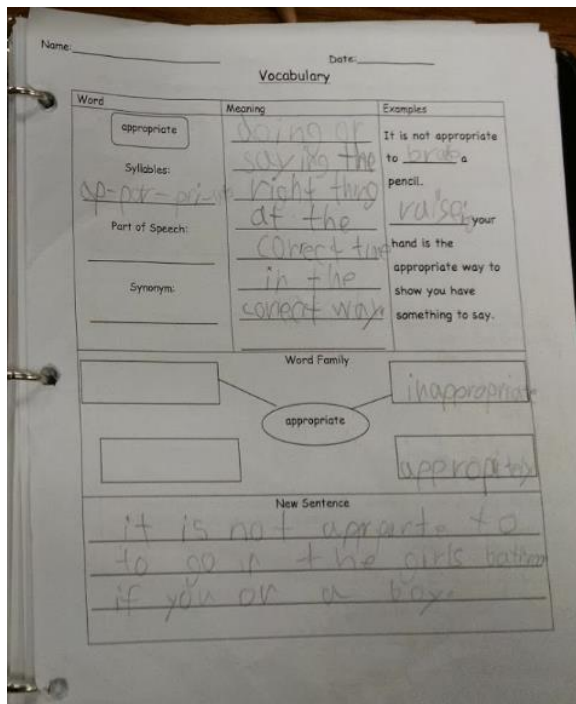 Name:
Date:
Vocabulary
Word
Meaning
Examples
appropriate
Syllables:
ap-por-pri-
Part of Speech:
Synonym:
doing or
saying the
right thing
at the
correct time
in the
correct way
It is not appropriate
to brake a
pencil.
raising your
hand is the
appropriate way to
show you have
something to say.
Word Family
appropriate
inappropriate
New Sentence
it is not aprarte to
to go in the girls
if you or a boy.